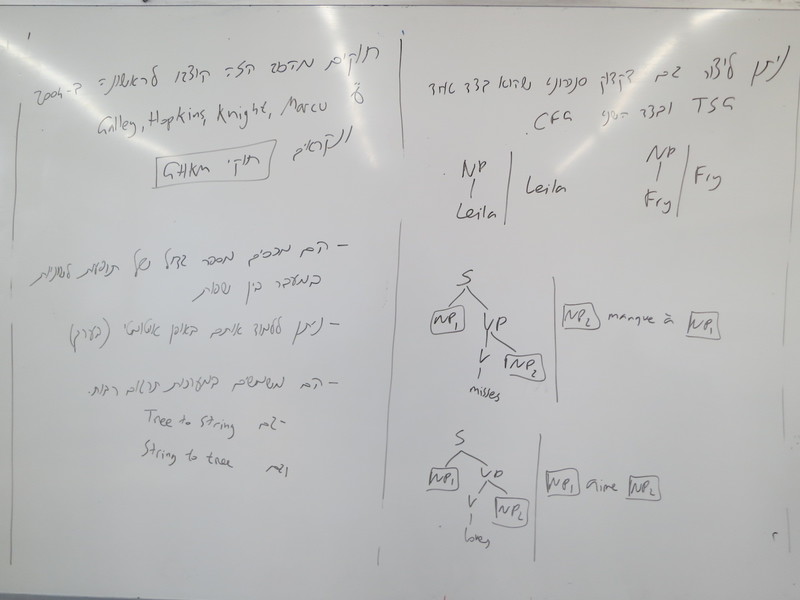 ניתן ליצור גם דקדוק סנכרוני שהוא בצד אחד
TSG ובצד השני CFG.
NP
Leila
Leila
NP
Fry
Fry
S
NP1 VP
V NP2
misses
NP2 manque à NP1
S
NP1 VP
V NP2
loves
NP1 aime NP2
חוקים מהסוג הזה הוצגו לראשונה ב-2004
ע"י Galley, Hopkins, Knight, Marcu
ונקראים חוקי GHKM
- הם מכסים מספר גדול של תופעות לשוניות
במעבר בין שפות
- ניתן ללמוד אותם באופן אוטומטי (בערך)
- הם משמשים במערכות תרגום רבות.
- גם Tree to String
וגם String to tree